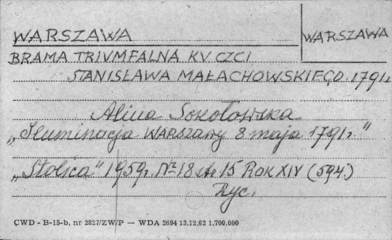 WARSZAWA
WARSZAWA
BRAMA TRIVMFALNA KV CZCI
STANISŁAWA MAŁACHOWSKIEGO. 1791.
Alina Sokołowska
„Iluminacja WARSZAWY 8 maja 1791 r."
„Stolica" 1959 r. Nr 18 s. 15 ROK XIV (594)
Ryc.
CWD - B-15-b, nr 2827/ZW/P — WDA 2694 13.12.62 1.700.000